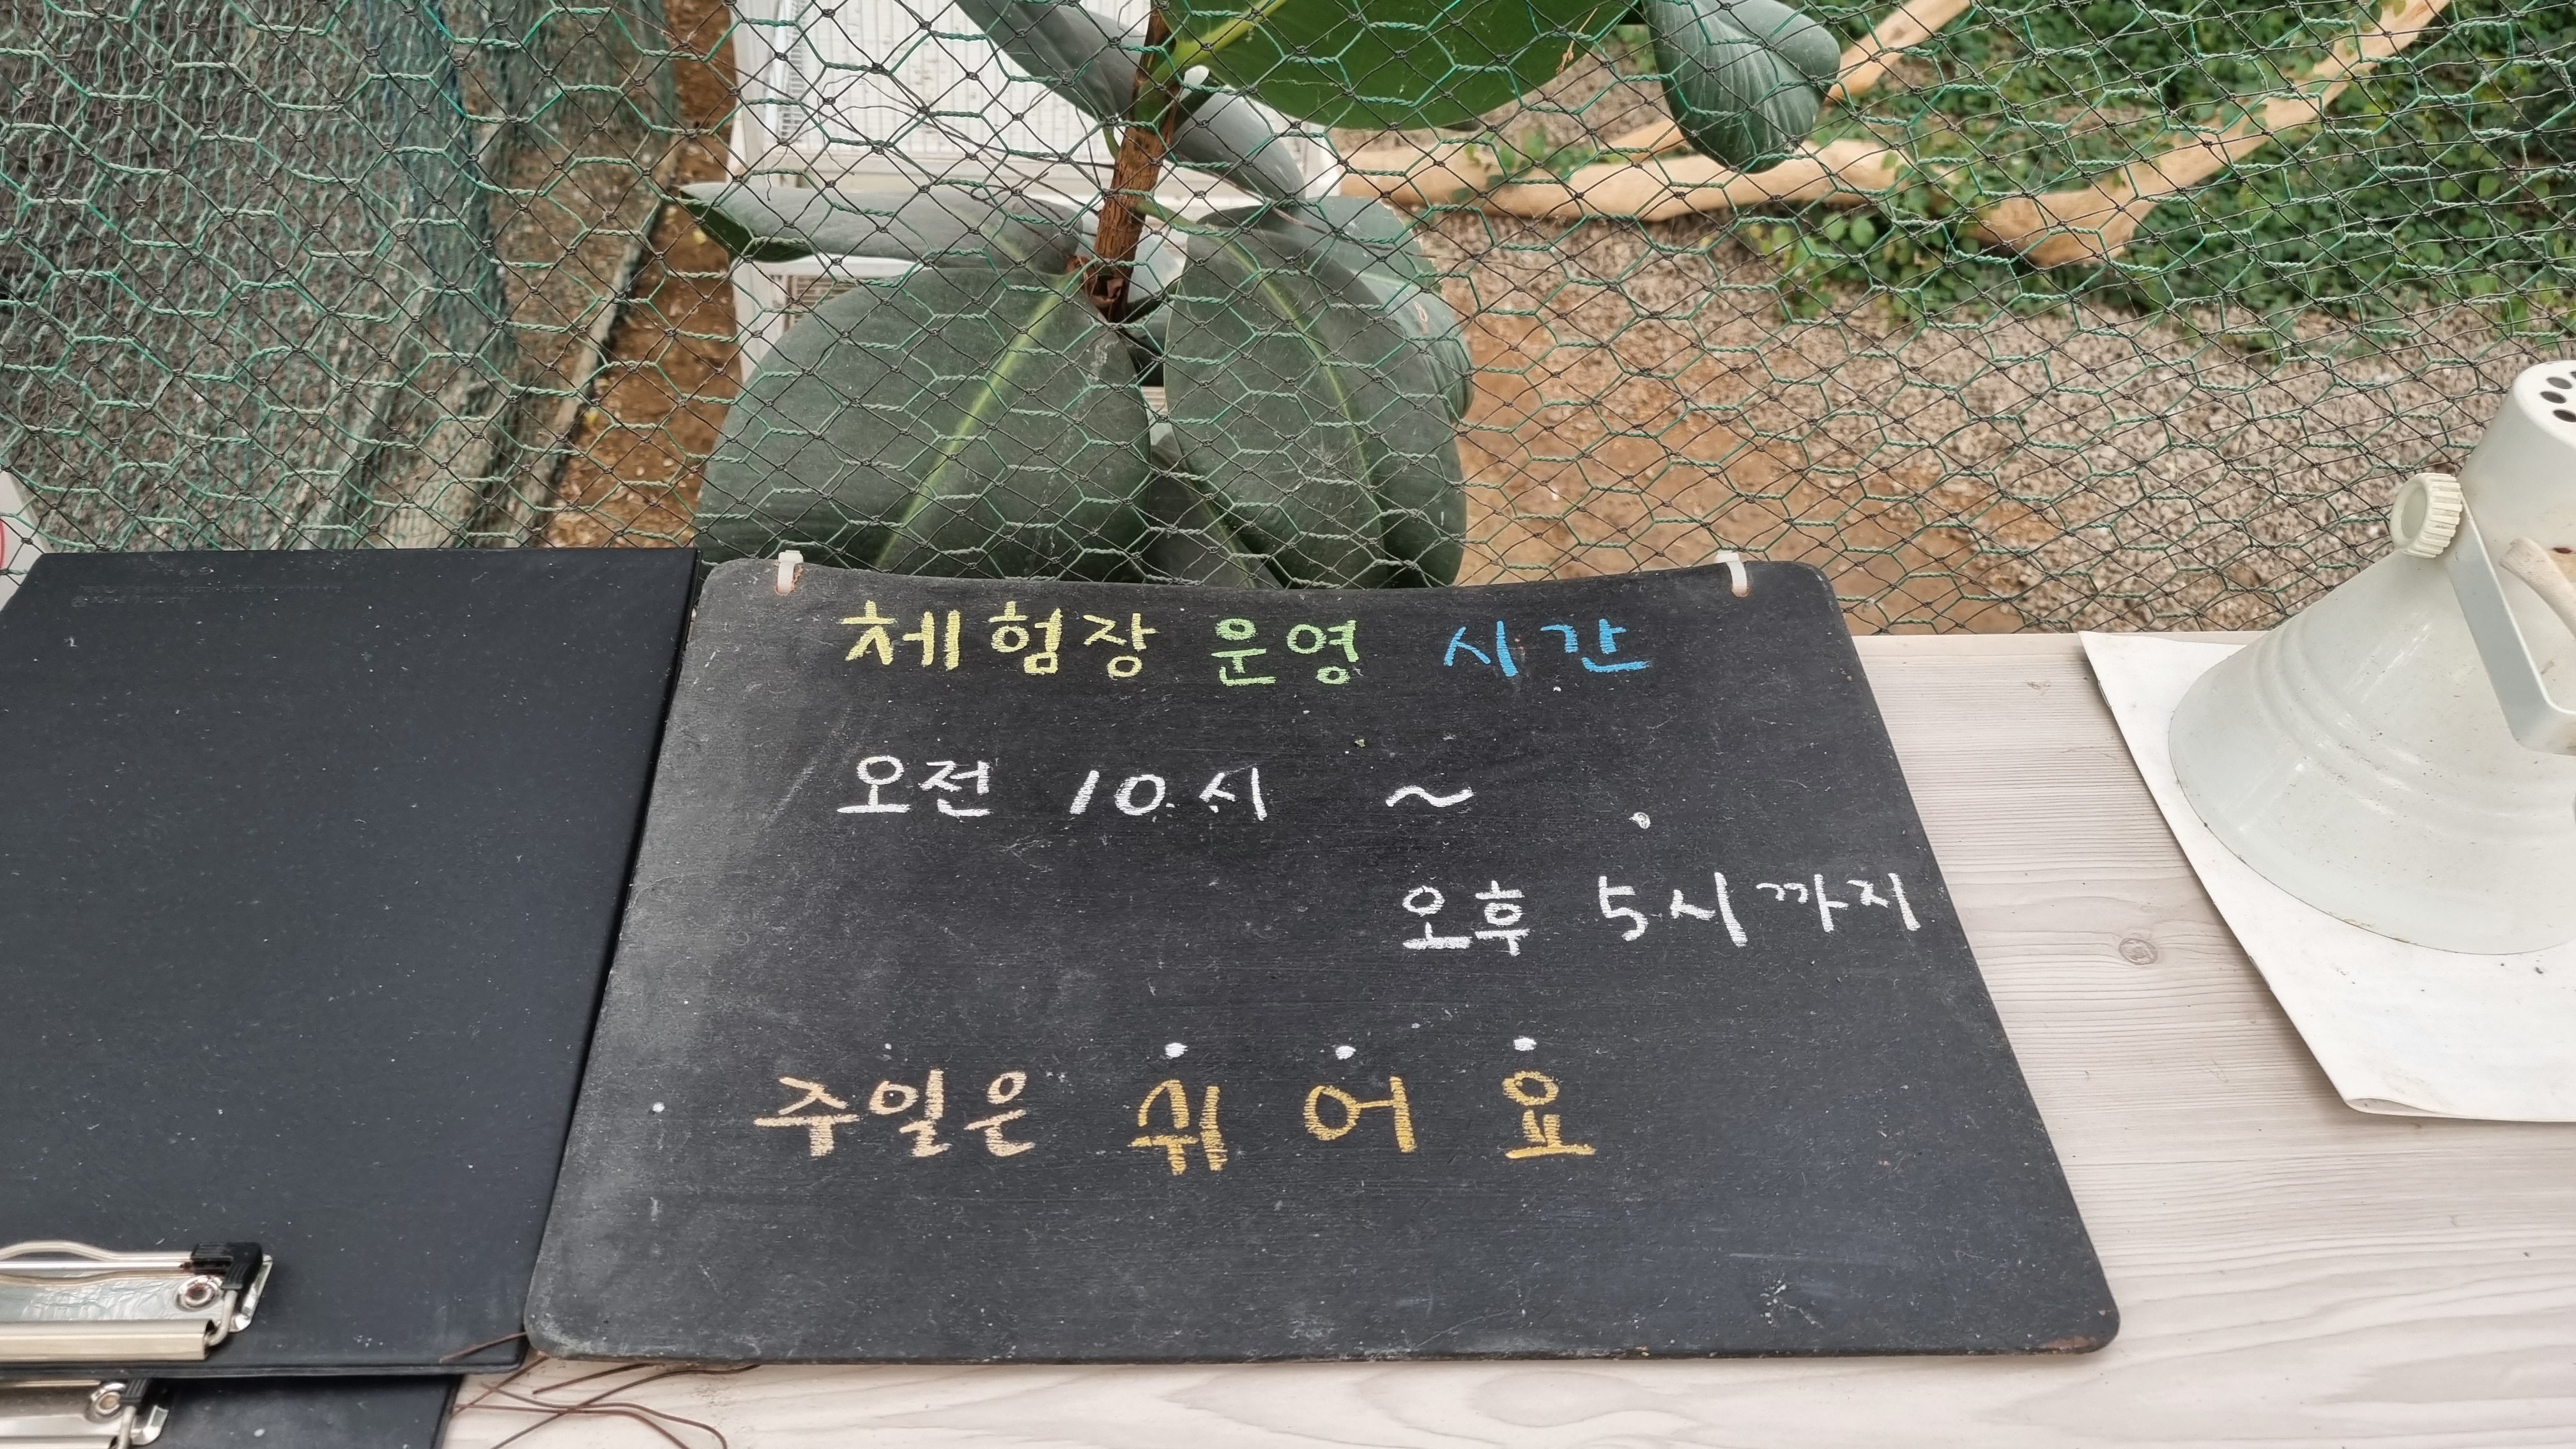 체험장 운영 시간
오전 10시 ~
오후 5시까지
주일은 쉬어요